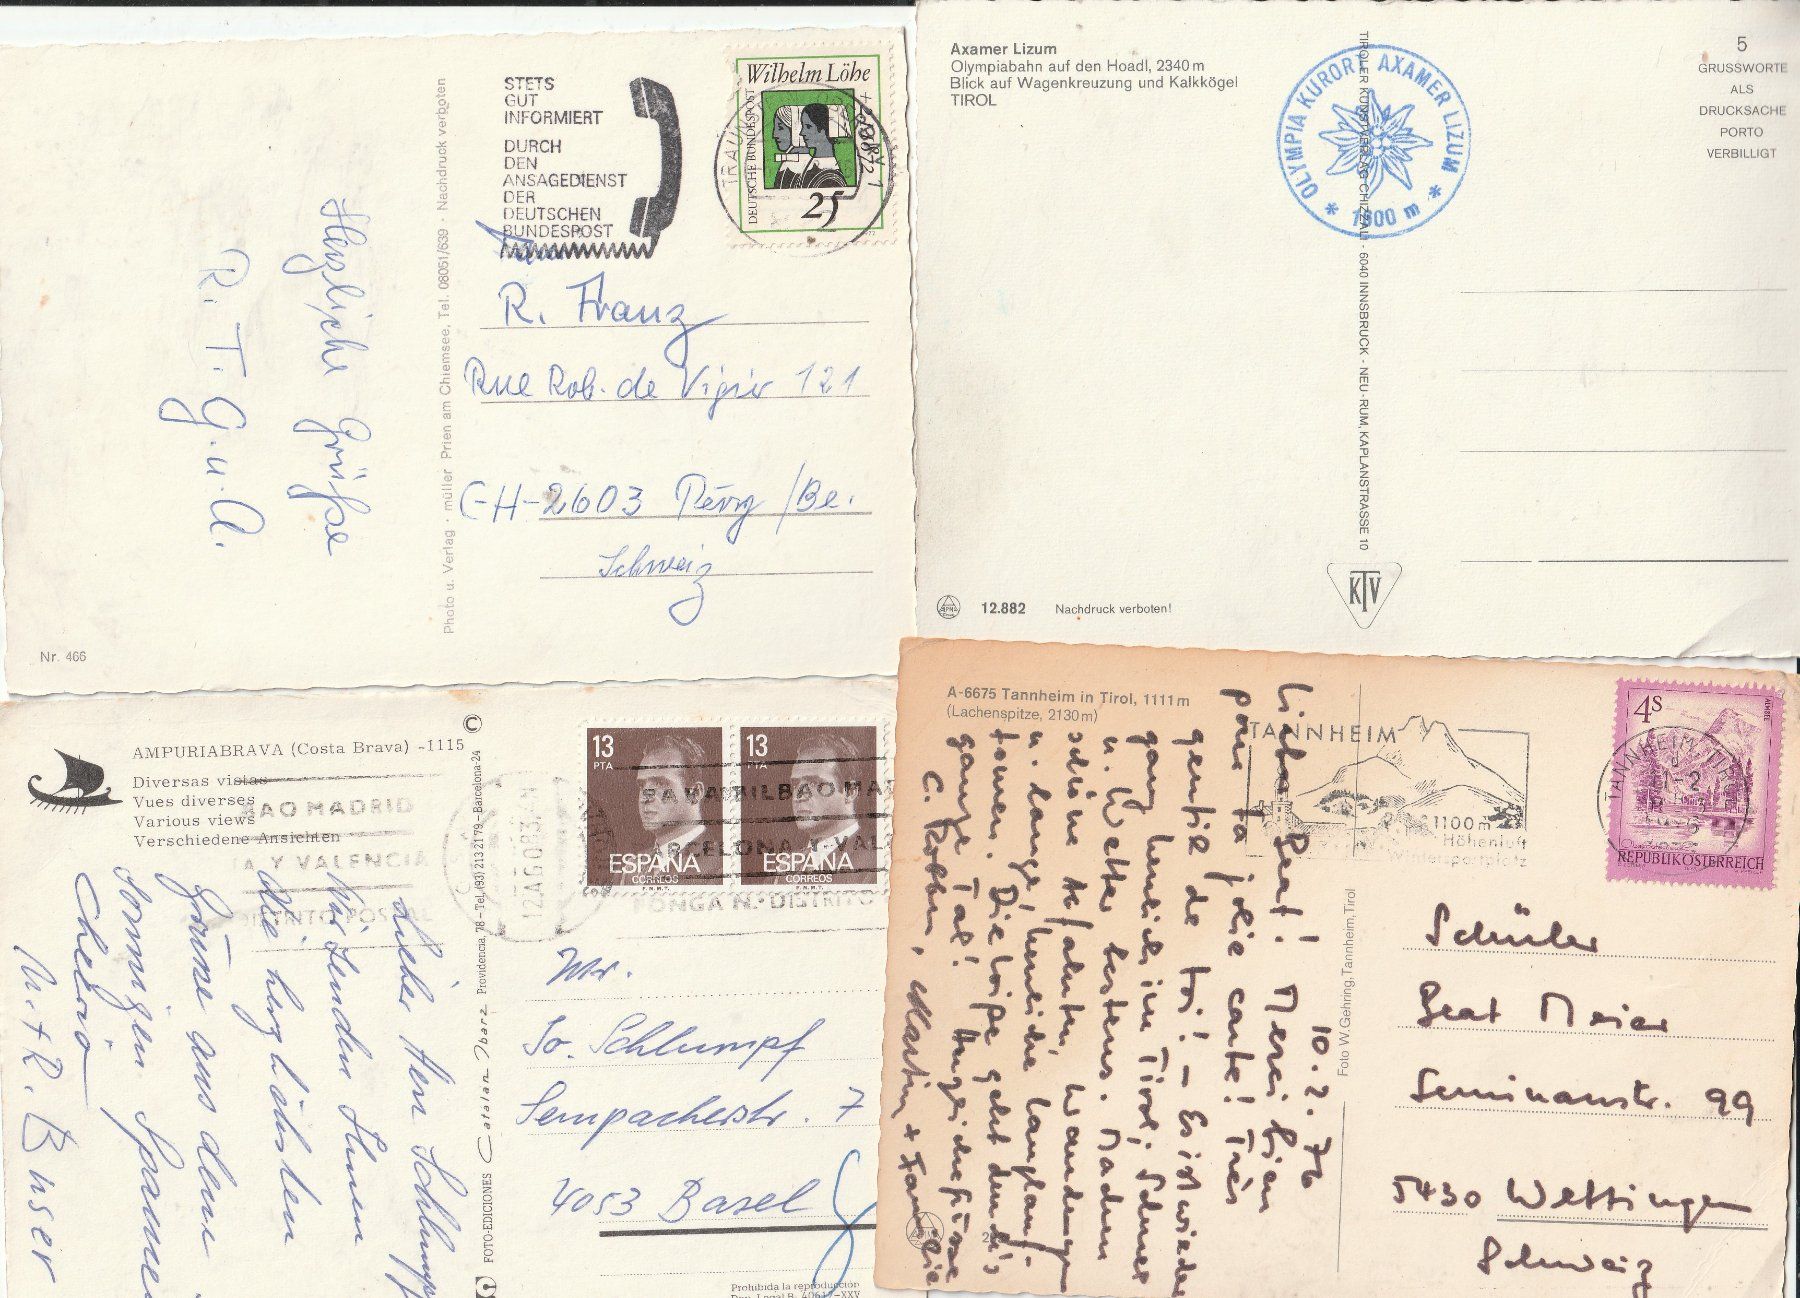 STETS
GUT
INFORMIERT
DURCH
DEN
ANSAGEDIENST
DER
DEUTSCHEN
BUNDESPOST
Wilhelm Löhe
DEUTSCHE BUNDESPOST
25
Fam.
R. Franz
Rue Rob. de Vigier 121
CH-2603 Péry/Be.
Schweiz
Herzliche Grüße
R. T. G. u. A.
Photo u. Verlag · müller Prien am Chiemsee, Tel. 08051/639 · Nachdruck verboten
Nr. 466
Axamer Lizum
Olympiabahn auf den Hoadl, 2340 m
Blick auf Wagenkreuzung und Kalkkögel
TIROL
OLYMPIA KURORT AXAMER LIZUM
* 1600 m *
5
GRUSSWORTE
ALS
DRUCKSACHE
PORTO
VERBILLIGT
TIROLER KUNSTVERLAG CHIZZALI · 6040 INNSBRUCK - NEU-RUM, KAPLANSTRASSE 10
KTV
12.882 Nachdruck verboten!
AMPURIABRAVA (Costa Brava) -1115
Diversas vistas
Vues diverses
Various views
Verschiedene Ansichten
BAO MADRID
A Y VALENCIA
DISTRITO POSTAL
13 PTA
ESPAÑA
CORREOS
F.N.M.T.
13 PTA
ESPAÑA
CORREOS
F.N.M.T.
BILBAO MA
ARCELONA Y VAL
PONGA N.º DISTRITO
12 AGO 83
Lieber Herr Schlumpf
Wir senden Ihnen
die herzlichsten
Grüsse aus dem
sonnigen Spanien
Cheerio
M. + R. Buser
Mr.
Jo. Schlumpf
Sempacherstr. 7
4053 Basel
© FOTO-EDICIONES Catalan Ibarz Providencia, 78 – Tel. (93) 213 21 79 – Barcelona-24
Prohibida la reproducción
Dep. Legal B. 40617-XXV
A-6675 Tannheim in Tirol, 1111 m
(Lachenspitze, 2130 m)
TANNHEIM
1100 m
Höhenluft
Wintersportplatz
TANNHEIM, TIROL
4S
ALMSEE
REPUBLIK ÖSTERREICH
10.2.76
Lieber Beat! Merci bien
pour ta jolie carte! Très
gentil de toi! – Es ist wieder
ganz herrlich im Tirol; Schnee
u. Wetter bestens. Machen
schöne Abfahrten, Wanderungen
u. lange, herrliche Langlauf-
touren. Die Loipe geht durch's
ganze Tal!
Martin + Familie
Foto W. Gehring, Tannheim, Tirol
Schüler
Beat Meier
Seminarstr. 99
5430 Wettingen
Schweiz